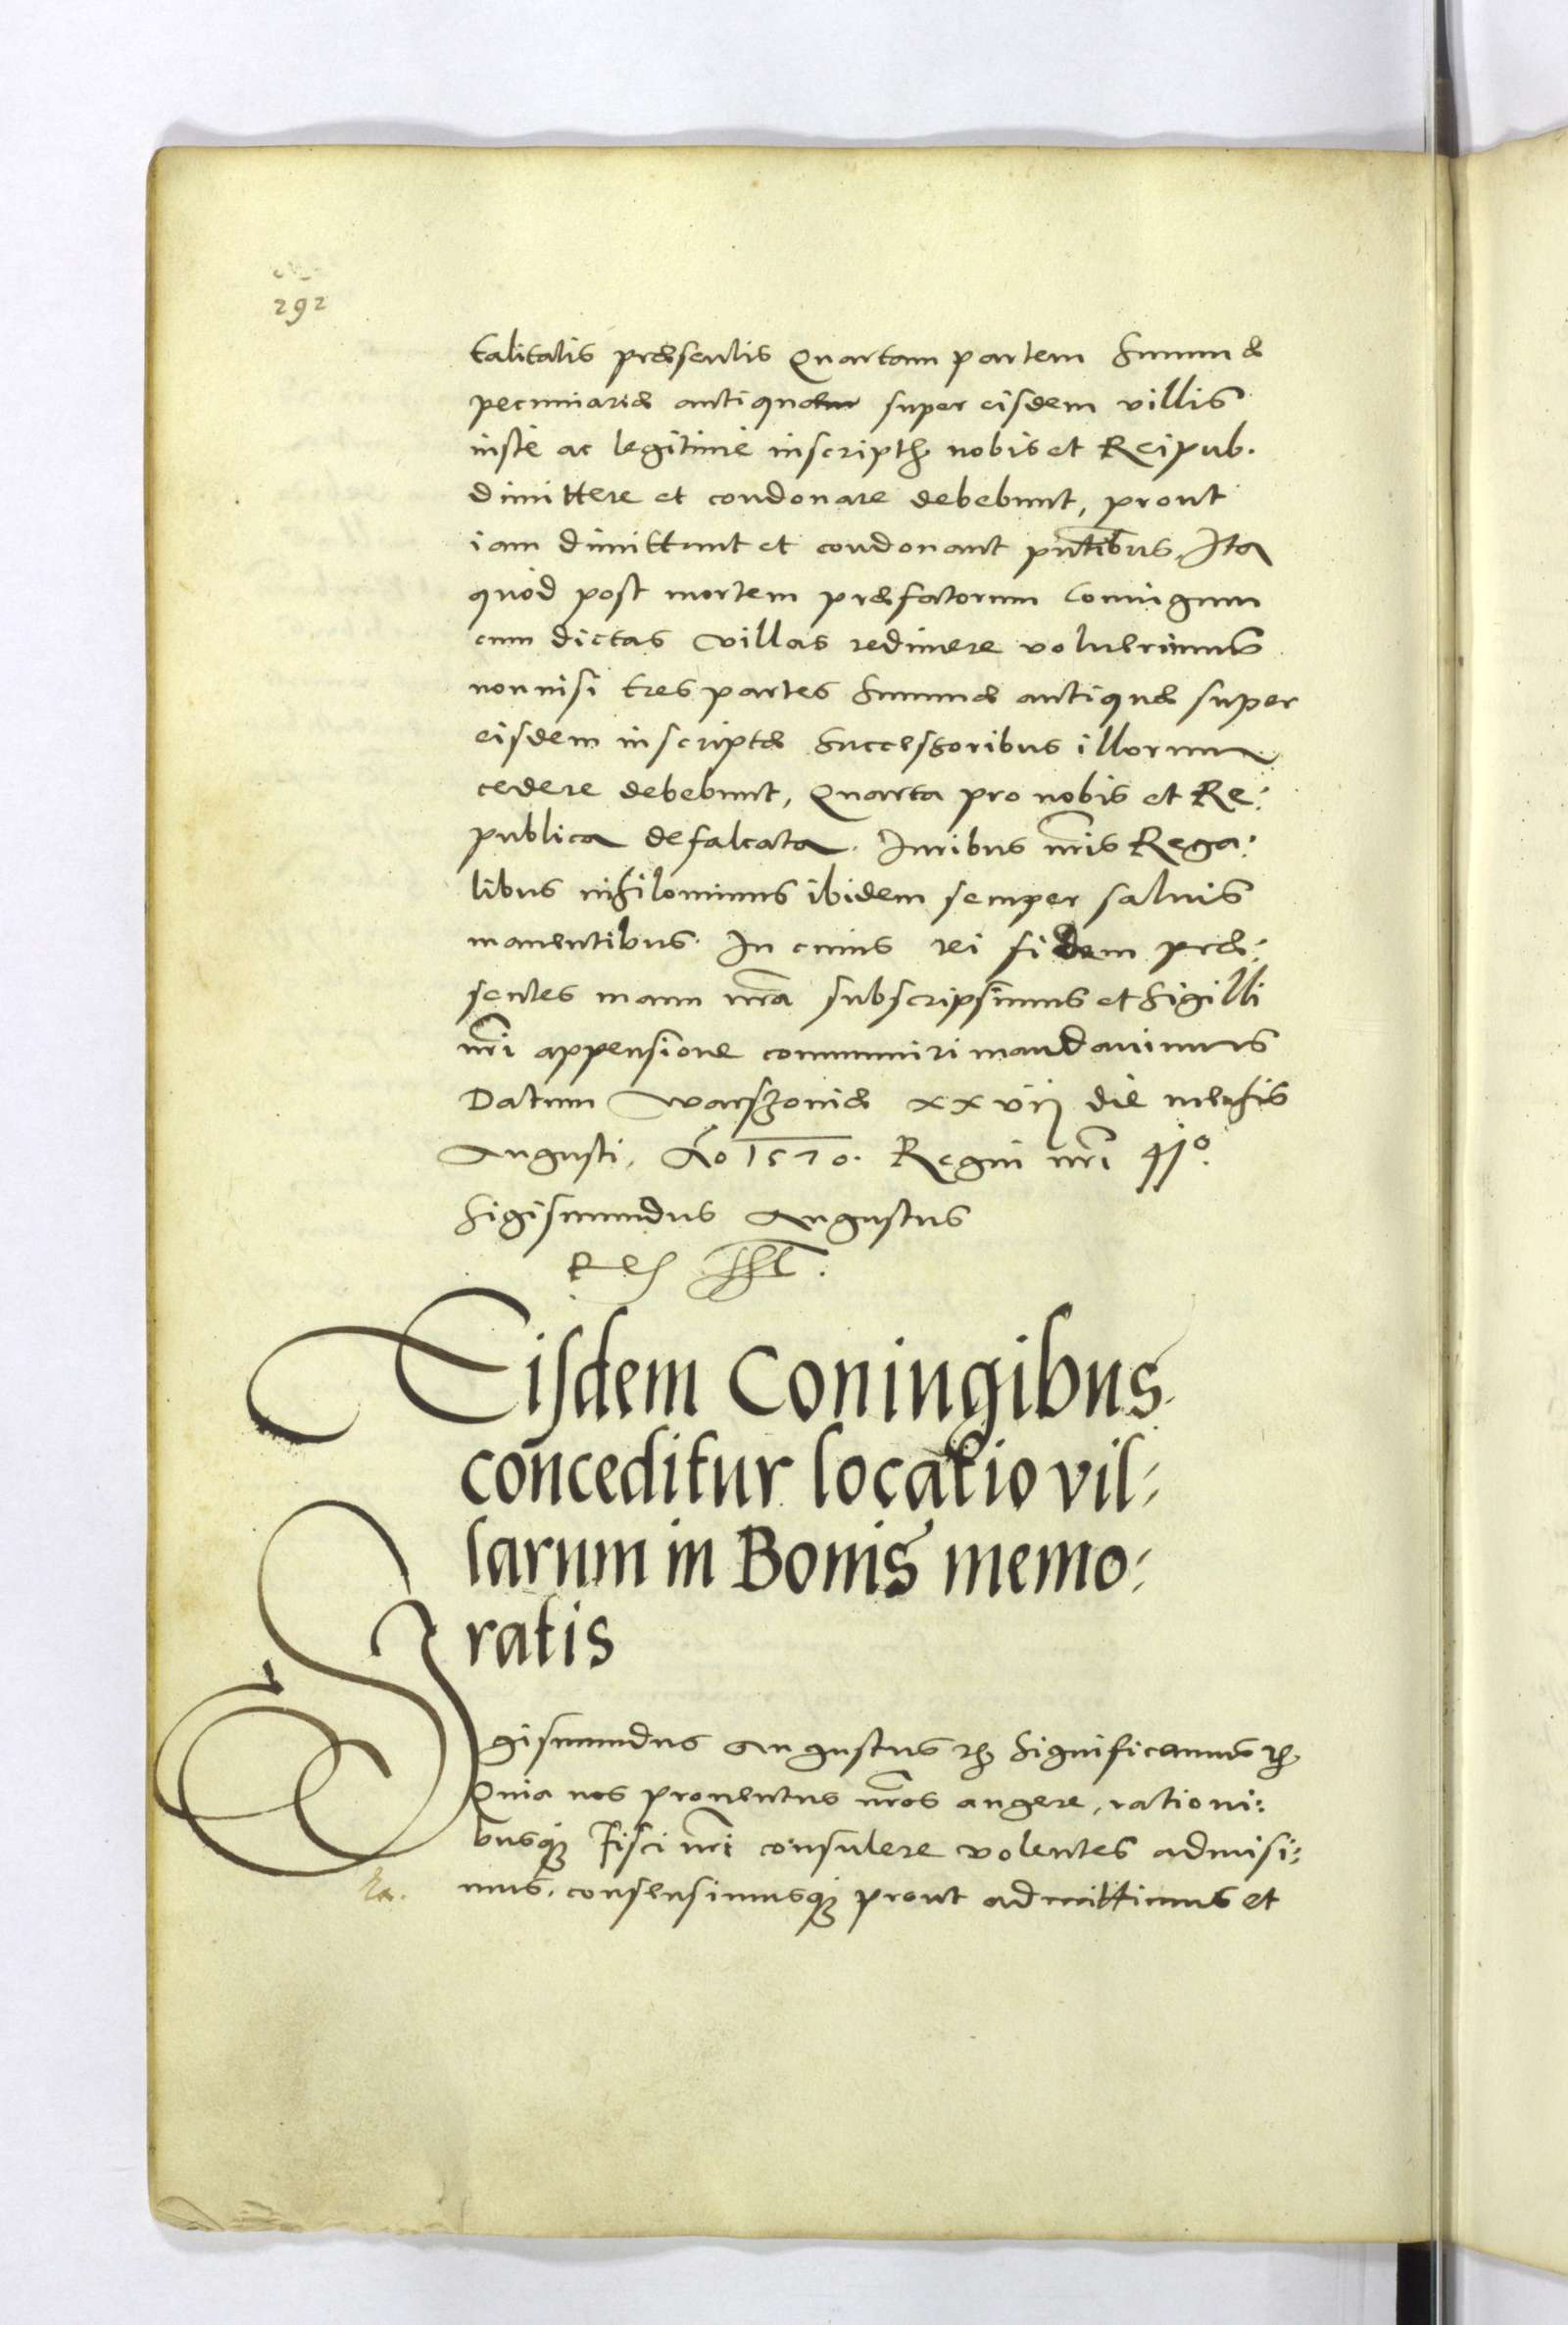 292
talitatis præsentis Quartam partem Summæ
pecuniariæ antiquæ super eisdem villis
iustè ac legitimè inscriptę nobis et Reipub.
dimittere et condonare debebunt, prout
iam dimittunt et condonant pñtibus. Ita
quòd post mortem præfatorum Coniugum
cum dictas villas redimere voluerimus
nonnisi tres partes Summæ antiquæ super
eisdem inscriptæ Successoribus illorum
cedere debebunt, Quarta pro nobis et Re:
publica defalcata. Iuribus nr̃is Rega:
libus nihilominus ibidem semper saluis
manentibus. In cuius rei fidem præ:
sentes manu nr̃a subscripsimus et Sigilli
nr̃i appensione communiri mandauimus
Datum Warszouiæ xxvij die mensis
Augusti, Ao 1570. Regni nr̃i 41º.
Sigismundus Augustus
Rex
Eisdem Coniugibus
conceditur locatio vil:
larum in Bonis memo:
ratis
Sigismundus Augustus ꝛc. Significamus ꝛc.
Quia nos prouentus nr̃os augere, rationi:
busq3 Fisci nr̃i consulere volentes admisi:
mus, consensimusq3 prout admittimus et